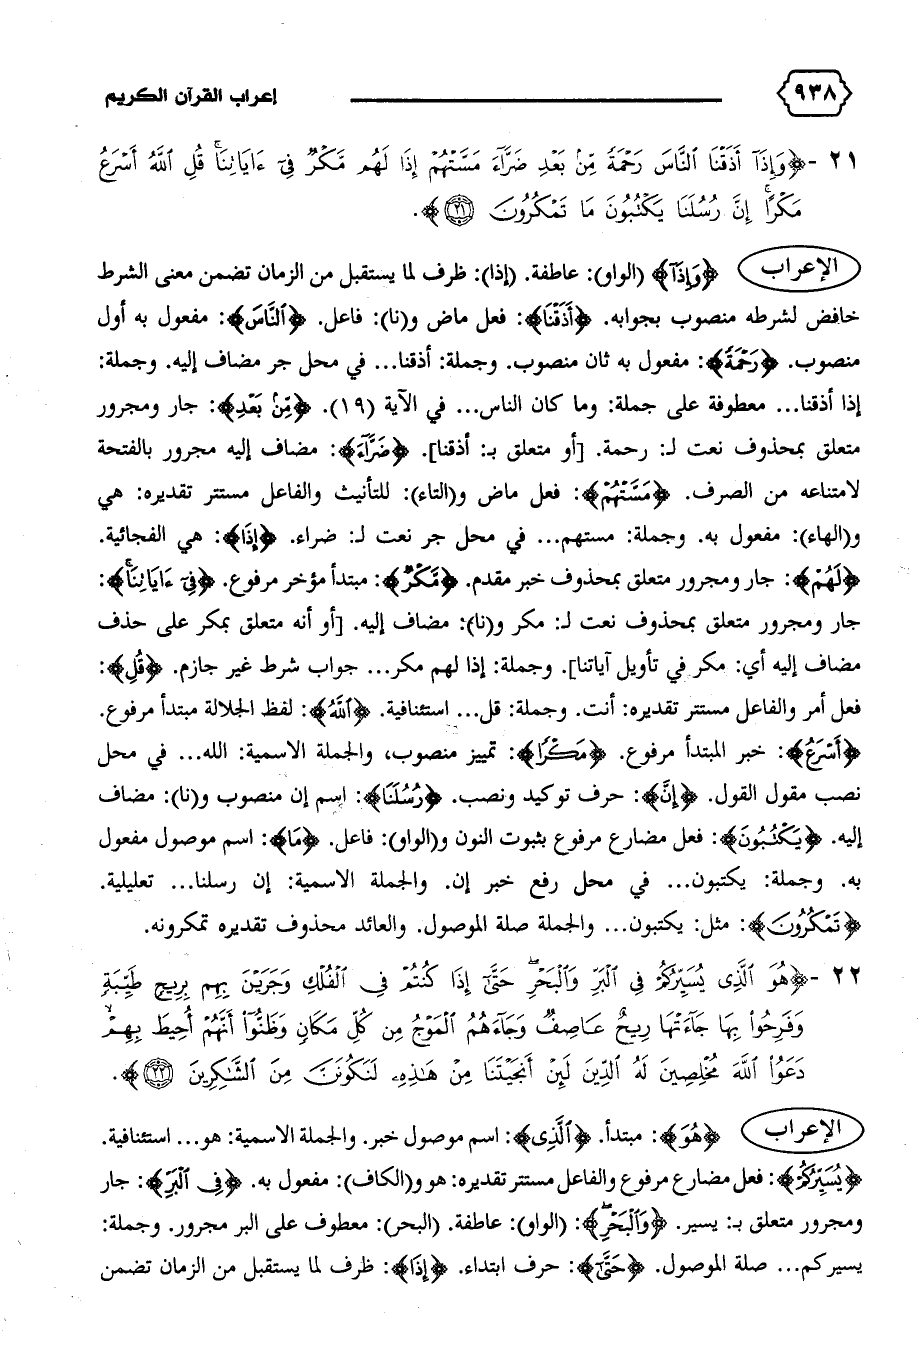 ٩٣٨ إعراب القرآن الكريم
٢١ - ﴿وَإِذَآ أَذَقْنَا ٱلنَّاسَ رَحْمَةً مِّنۢ بَعْدِ ضَرَّآءَ مَسَّتْهُمْ إِذَا لَهُم مَّكْرٌ فِىٓ ءَايَاتِنَا ۚ قُلِ ٱللَّهُ أَسْرَعُ
مَكْرًا ۚ إِنَّ رُسُلَنَا يَكْتُبُونَ مَا تَمْكُرُونَ ۝٢١﴾.
الإعراب ﴿وَإِذَآ﴾ (الواو): عاطفة. (إذا): ظرف لما يستقبل من الزمان تضمن معنى الشرط
خافض لشرطه منصوب بجوابه. ﴿أَذَقْنَا﴾: فعل ماض و(نا): فاعل. ﴿ٱلنَّاسَ﴾: مفعول به أول
منصوب. ﴿رَحْمَةً﴾: مفعول به ثان منصوب. وجملة: أذقنا... في محل جر مضاف إليه. وجملة:
إذا أذقنا... معطوفة على جملة: وما كان الناس... في الآية (١٩). ﴿مِّنۢ بَعْدِ﴾: جار ومجرور
متعلق بمحذوف نعت لـ: رحمة. [أو متعلق بـ: أذقنا]. ﴿ضَرَّآءَ﴾: مضاف إليه مجرور بالفتحة
لامتناعه من الصرف. ﴿مَسَّتْهُمْ﴾: فعل ماض و(التاء): للتأنيث والفاعل مستتر تقديره: هي
و(الهاء): مفعول به. وجملة: مستهم... في محل جر نعت لـ: ضراء. ﴿إِذَا﴾: هي الفجائية.
﴿لَهُم﴾: جار ومجرور متعلق بمحذوف خبر مقدم. ﴿مَّكْرٌ﴾: مبتدأ مؤخر مرفوع. ﴿فِىٓ ءَايَاتِنَا ۚ﴾:
جار ومجرور متعلق بمحذوف نعت لـ: مكر و(نا): مضاف إليه. [أو أنه متعلق بمكر على حذف
مضاف إليه أي: مكر في تأويل آياتنا]. وجملة: إذا لهم مكر... جواب شرط غير جازم. ﴿قُلِ﴾:
فعل أمر والفاعل مستتر تقديره: أنت. وجملة: قل... استئنافية. ﴿ٱللَّهُ﴾: لفظ الجلالة مبتدأ مرفوع.
﴿أَسْرَعُ﴾: خبر المبتدأ مرفوع. ﴿مَكْرًا﴾: تمييز منصوب، والجملة الاسمية: الله... في محل
نصب مقول القول. ﴿إِنَّ﴾: حرف توكيد ونصب. ﴿رُسُلَنَا﴾: اسم إن منصوب و(نا): مضاف
إليه. ﴿يَكْتُبُونَ﴾: فعل مضارع مرفوع بثبوت النون و(الواو): فاعل. ﴿مَا﴾: اسم موصول مفعول
به. وجملة: يكتبون... في محل رفع خبر إن. والجملة الاسمية: إن رسلنا... تعليلية.
﴿تَمْكُرُونَ﴾: مثل: يكتبون... والجملة صلة الموصول. والعائد محذوف تقديره تمكرونه.
٢٢ - ﴿هُوَ ٱلَّذِى يُسَيِّرُكُمْ فِى ٱلْبَرِّ وَٱلْبَحْرِ ۖ حَتَّىٰٓ إِذَا كُنتُمْ فِى ٱلْفُلْكِ وَجَرَيْنَ بِهِم بِرِيحٍ طَيِّبَةٍ
وَفَرِحُوا۟ بِهَا جَآءَتْهَا رِيحٌ عَاصِفٌ وَجَآءَهُمُ ٱلْمَوْجُ مِن كُلِّ مَكَانٍ وَظَنُّوٓا۟ أَنَّهُمْ أُحِيطَ بِهِمْ ۙ
دَعَوُا۟ ٱللَّهَ مُخْلِصِينَ لَهُ ٱلدِّينَ لَئِنْ أَنجَيْتَنَا مِنْ هَـٰذِهِۦ لَنَكُونَنَّ مِنَ ٱلشَّـٰكِرِينَ ۝٢٢﴾.
الإعراب ﴿هُوَ﴾: مبتدأ. ﴿ٱلَّذِى﴾: اسم موصول خبر. والجملة الاسمية: هو... استئنافية.
﴿يُسَيِّرُكُمْ﴾: فعل مضارع مرفوع والفاعل مستتر تقديره: هو و(الكاف): مفعول به. ﴿فِى ٱلْبَرِّ﴾: جار
ومجرور متعلق بـ: يسير. ﴿وَٱلْبَحْرِ ۖ﴾: (الواو): عاطفة. (البحر): معطوف على البر مجرور. وجملة:
يسيركم... صلة الموصول. ﴿حَتَّىٰٓ﴾: حرف ابتداء. ﴿إِذَا﴾: ظرف لما يستقبل من الزمان تضمن